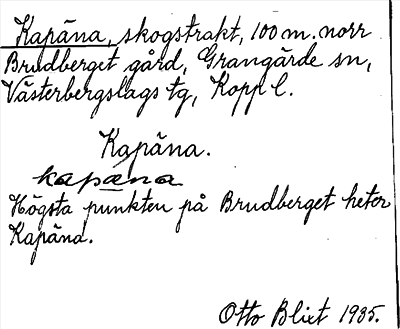 Kapäna, skogstrakt, 100 m. norr
Brudberget gård, Grangärde sn,
Västerbergslags tg, Kopp l.
Kapäna.
kapäna
Högsta punkten på Brudberget heter
Kapäna.
Otto Blixt 1935.